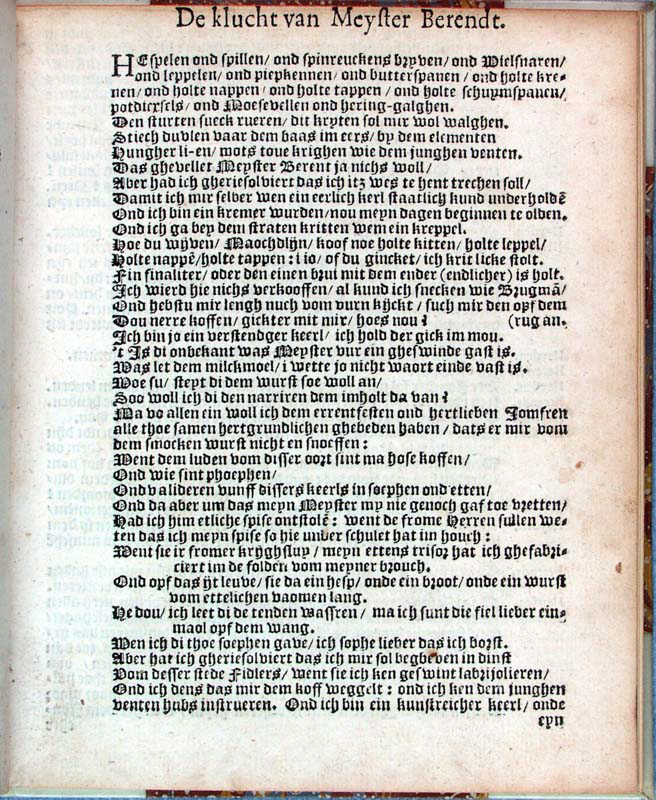 De klucht van Meyster Berendt.
HEspelen ond spillen/ ond spinreuckens bryven/ ond Wielsnaren/
ond leppelen/ ond piepkennen/ ond butterspanen/ ond holte kre-
nen/ ond holte nappen/ ond holte tappen/ ond holte schuymspanen/
potdiexsels/ ond Moesevellen ond hering-galghen.
Den sturten sueck rueren/ dit kryten sol mir wol walghen.
Stiech duvlen vaar dem baas im eers/ by dem elementen
Hungher li-en/ wots toue krighen wie dem junghen venten.
Das ghevellet Meyster Berent ja nichs woll/
Aber had ich gheriesolviert das ich itz wes te hent trechen soll/
Damit ich mir selber wen ein eerlich kerl staatlich kund underholdē
Ond ich bin ein kremer wurden/nou meyn dagen beginnen te olden.
Ond ich ga bey dem straten kritten wem ein kreppel.
Hoe du wyven/ Maochdlyn/ koof noe holte kitten/ holte leppel/
Holte nappē/holte tappen: i io/ of du gincket/ ich krit licke stolt.
Fin finaliter/ oder den einen brui mit dem ender (endlicher) is holt.
Ich wierd hie nichs verkooffen/ al kund ich snecken wie Brugmā/
Ond hebstu mir lengh nuch vom vurn kyckt/ such mir den opf dem
Dou nerre koffen/ gickter mit mir/ hoes nou? (rug an.
Ich bin jo ein verstendger keerl/ ich hold der gick im mou.
't Is di onbekant was Meyster vur ein gheswinde gast is.
Was let dem milckmoel/ i wette jo nicht waort einde vast is.
Woe su/ steyt di dem wurst soe woll an/
Soo woll ich di den narriren dem imholt da van?
Ma vo allen ein woll ich dem errentfesten ond hertlieben Jomfren
alle thoe samen hertgrundlichen ghebeden haben/ dats er mir vom
dem smocken wurst nicht en snoeffen:
Went dem luden vom disser oort sint ma hose koffen/
Ond wie sint phoephen/
Ond valideren vunff dissers keerls in soephen ond etten/
Ond da aber um das meyn Meyster my nie genoch gaf toe vretten/
Had ich him etliche spise ontstolē: went de frome Herren sullen we-
ten das ich meyn spise so hie unber schulet hat im houch:
Went sie ir fromer kryghsluy/ meyn ettens trisor hat ich ghefabri-
ciert im de folden vom meyner brouch.
Ond opf das yt leuve/ sie da ein hesp/ onde ein broot/ onde ein wurst
vom ettelichen vaomen lang.
He dou/ ich leet di de tenden wassren/ ma ich sunt die fiel lieber ein-
maol opf dem wang.
Wen ich di thoe soephen gave/ ich sophe lieber das ich borst.
Aber hat ich gheriesolviert das ich mir sol begbeven in dinst
Vom desser stede Fidlers/ went sie ich ken geswint labrijolieren/
Ond ich dens das mir dem koff weggelt: ond ich ken dem junghen
venten hubs instrueren. Ond ich bin ein kunstreicher keerl/ onde
eyn